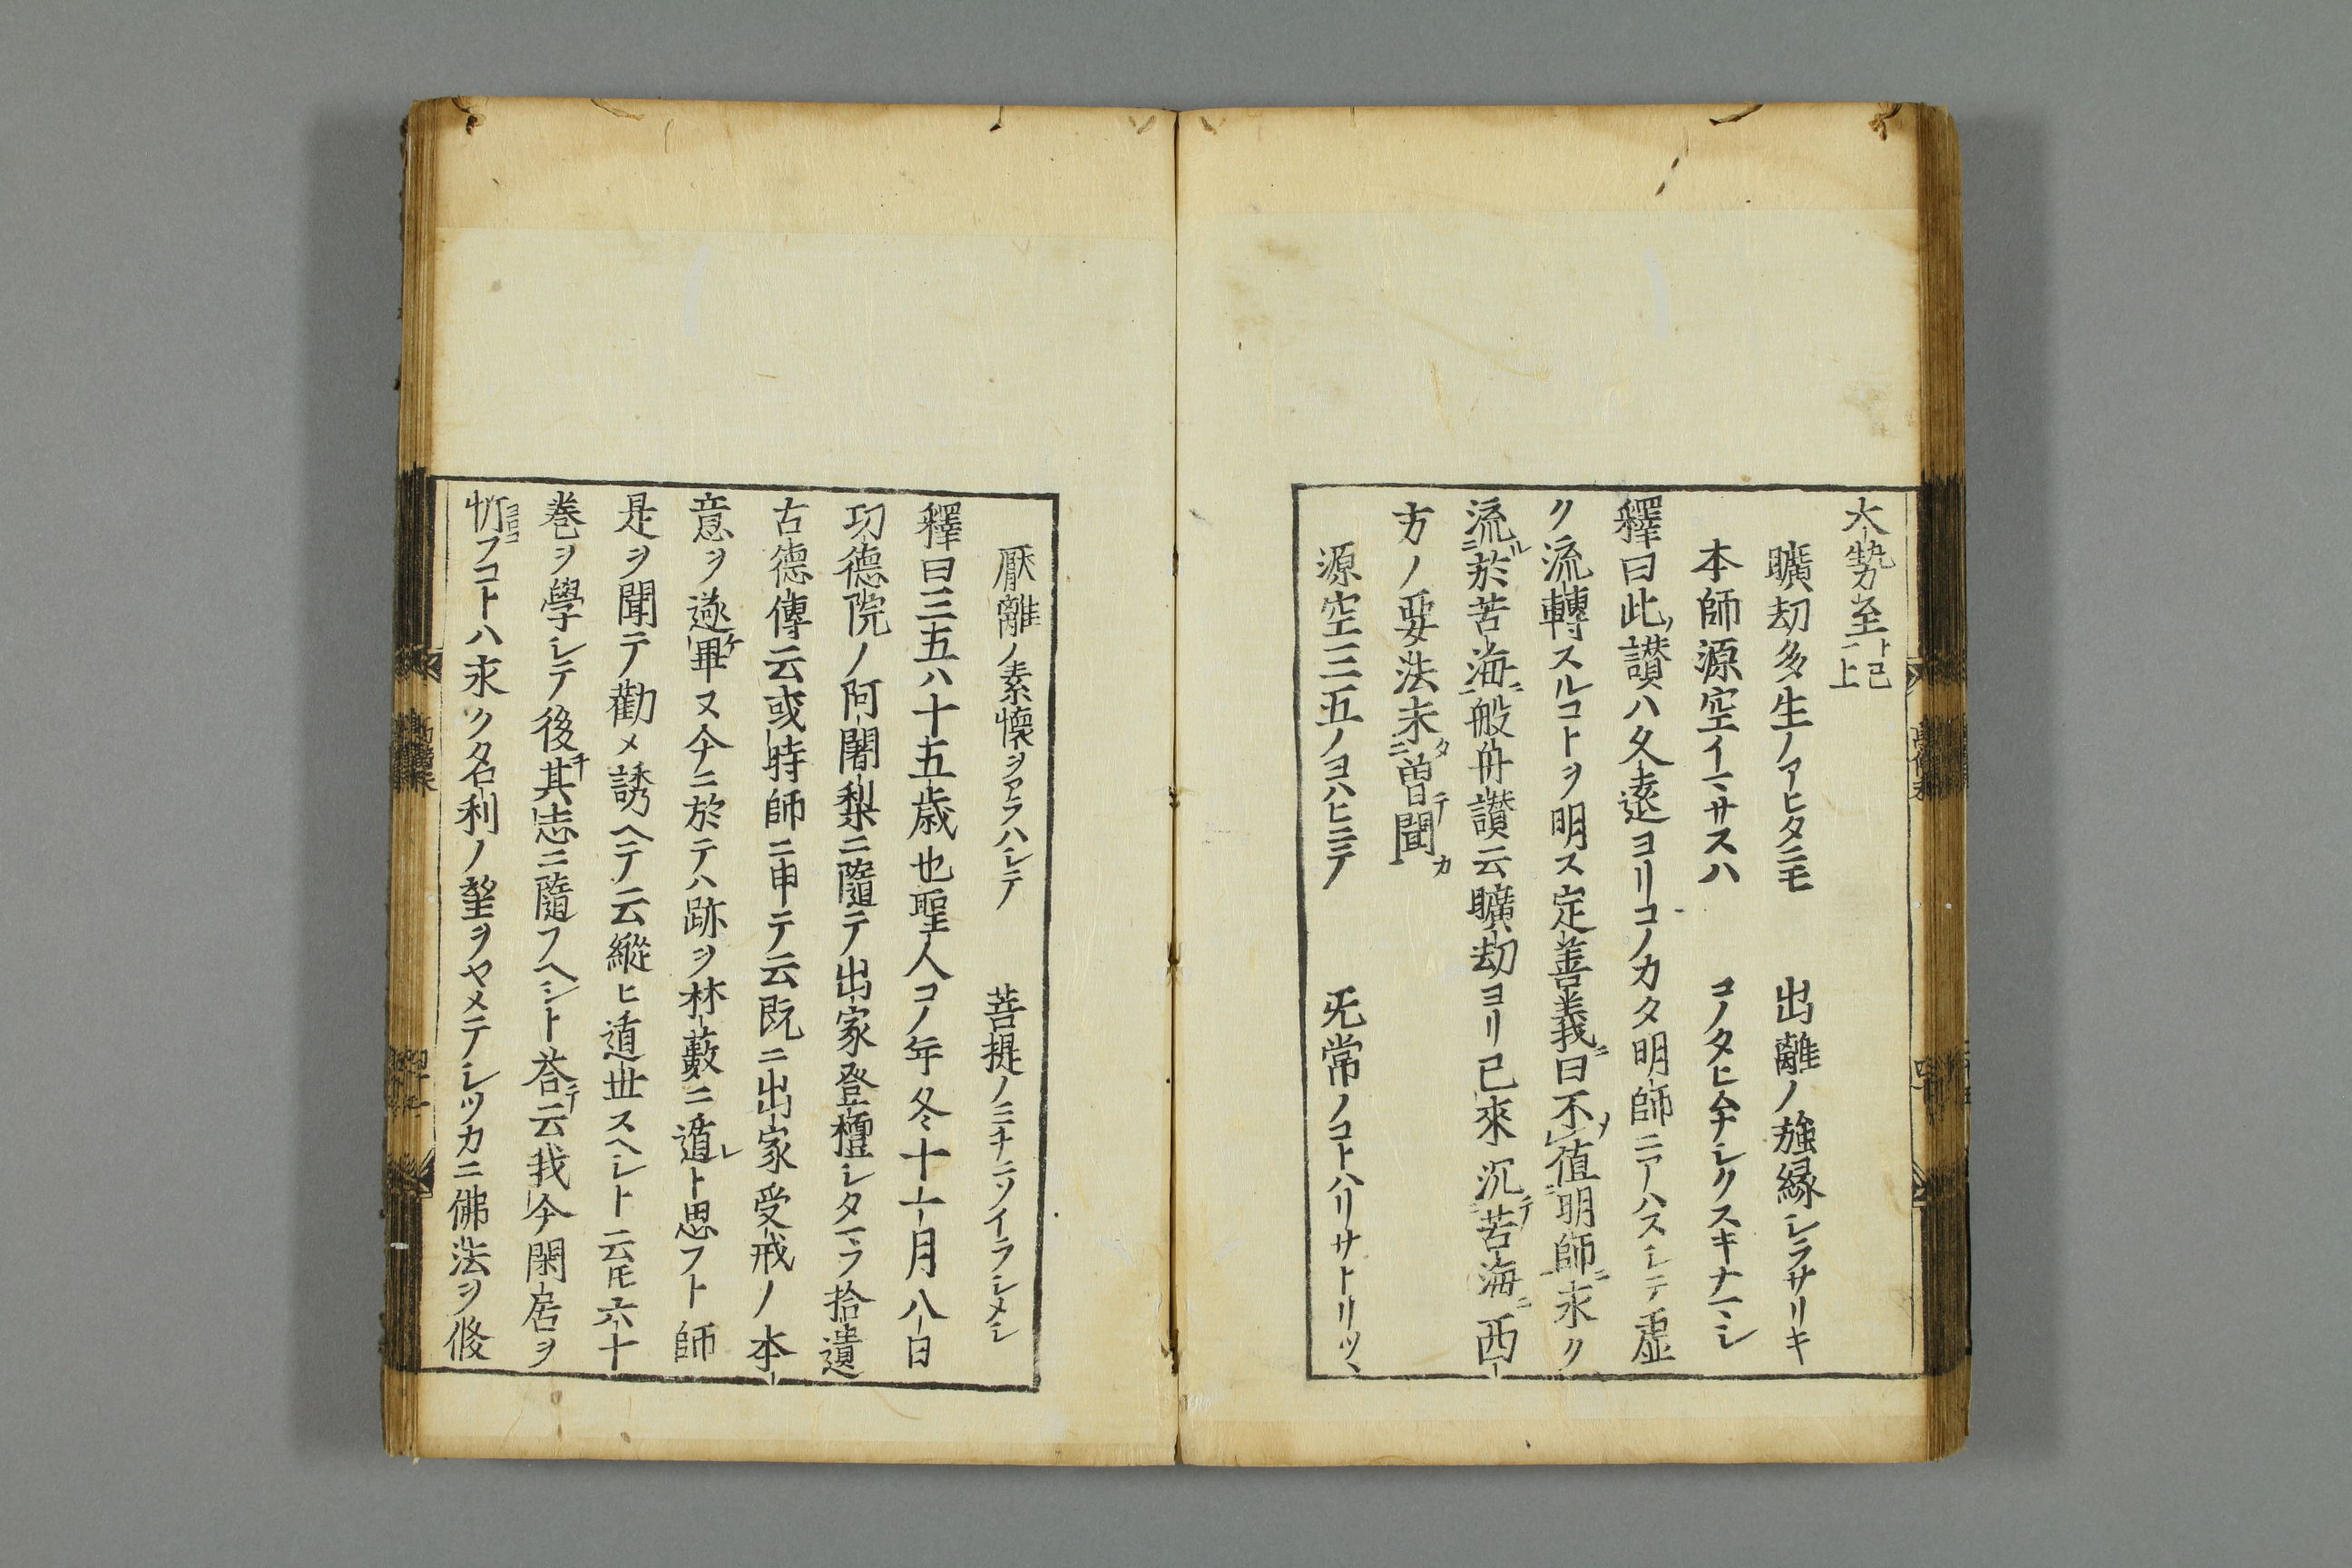 大勢至ト已上
曠劫多生ノアヒタニモ　出離ノ強縁シラサリキ
本師源空イマサスハ　コノタヒムナシクスキナマシ
釋曰此ノ讃ハ久遠ヨリコノカタ明師ニアハスシテ虚
ク流轉スルコトヲ明ス定善義ニ曰不メ値明師ニ求ク
流ル於苦海ニ般舟讃云曠劫ヨリ已來沉テ苦海ニ西
方ノ要法未タ曽テ聞カ
源空三五ノヨハヒニテ　旡常ノコトハリサトリツヽ
厭離ノ素懷ヲアラハシテ　菩提ノミチニソイラシメシ
釋曰三五ハ十五歳也聖人コノ年冬十一月八日
功德院ノ阿闍梨ニ隨テ出家登壇シタマフ拾遺
古德傳云或時師ニ申テ云既ニ出家受戒ノ本
意ヲ遂ケ畢ヌ今ニ於テハ跡ヲ林藪ニ遁レト思フト師
是ヲ聞テ勸メ誘ヘテ云縱ヒ遁世スヘシト云𪜈六十
巻ヲ學シテ後チ其志ニ隨フヘシト荅テ云我今閑居ヲ
忻フコトハ永ク名利ノ望ヲヤメテシツカニ佛法ヲ修